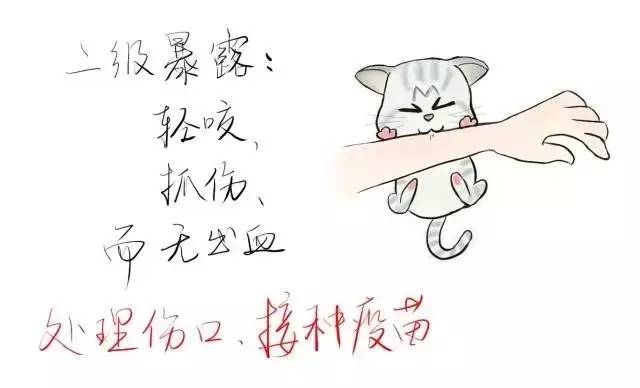 二级暴露：
轻咬、
抓伤、
而无出血
处理伤口、接种疫苗